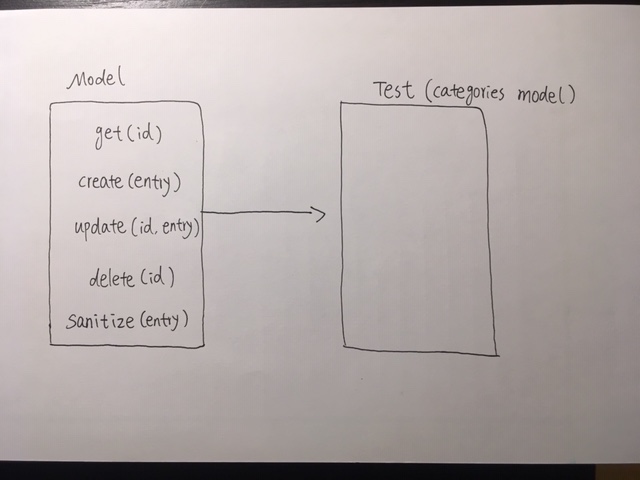 Model
get(id)
create(entry)
update(id, entry)
delete(id)
sanitize(entry)
Test (categories model)